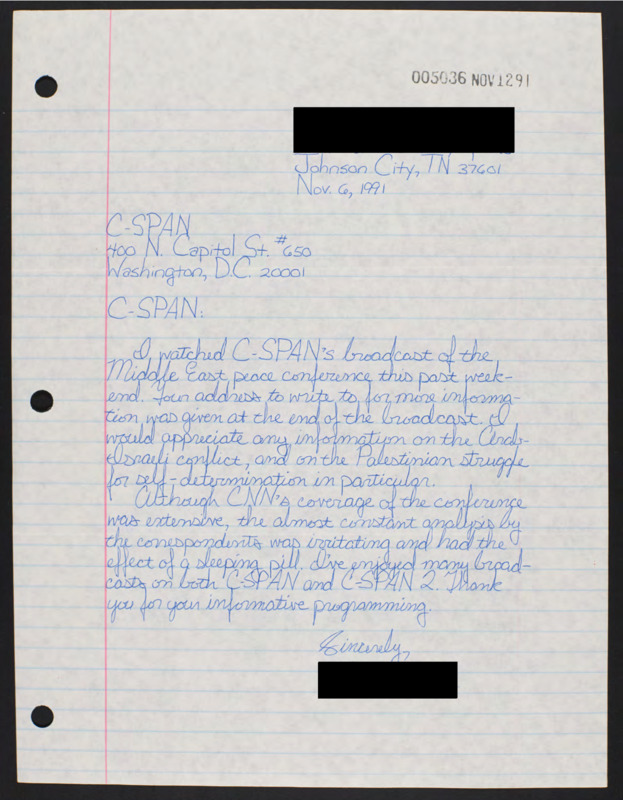 005036 NOV 12 91
Johnson City, TN 37601
Nov. 6, 1991
C-SPAN
400 N. Capitol St. #650
Washington, D.C. 20001
C-SPAN:
I watched C-SPAN's broadcast of the
Middle East peace conference this past week-
end. Your address to write to for more informa-
tion was given at the end of the broadcast. I
would appreciate any information on the Arab-
Israeli conflict, and on the Palestinian struggle
for self-determination in particular.
Although CNN's coverage of the conference
was extensive, the almost constant analysis by
the correspondents was irritating and had the
effect of a sleeping pill. I've enjoyed many broad-
casts on both C-SPAN and C-SPAN 2. Thank
you for your informative programming.
Sincerely,